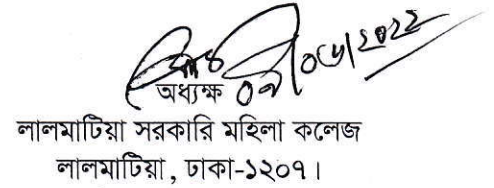 ০৯/০৬/২০২২
অধ্যক্ষ
লালমাটিয়া সরকারি মহিলা কলেজ
লালমাটিয়া, ঢাকা-১২০৭।